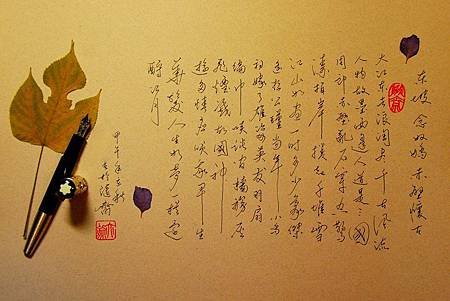 东坡念奴娇赤壁怀古
大江东去浪淘尽千古风流
人物故垒西边人道是三国
周郎赤壁乱石穿空惊
涛拍岸捲起千堆雪
江山如画一时多少豪傑
遥想公瑾当年小乔
初嫁了雄姿英发羽扇
纶巾谈笑间樯橹灰
飞烟灭故国神
遊多情应笑我早生
华发人生如梦一樽还
酹江月
甲午年立秋